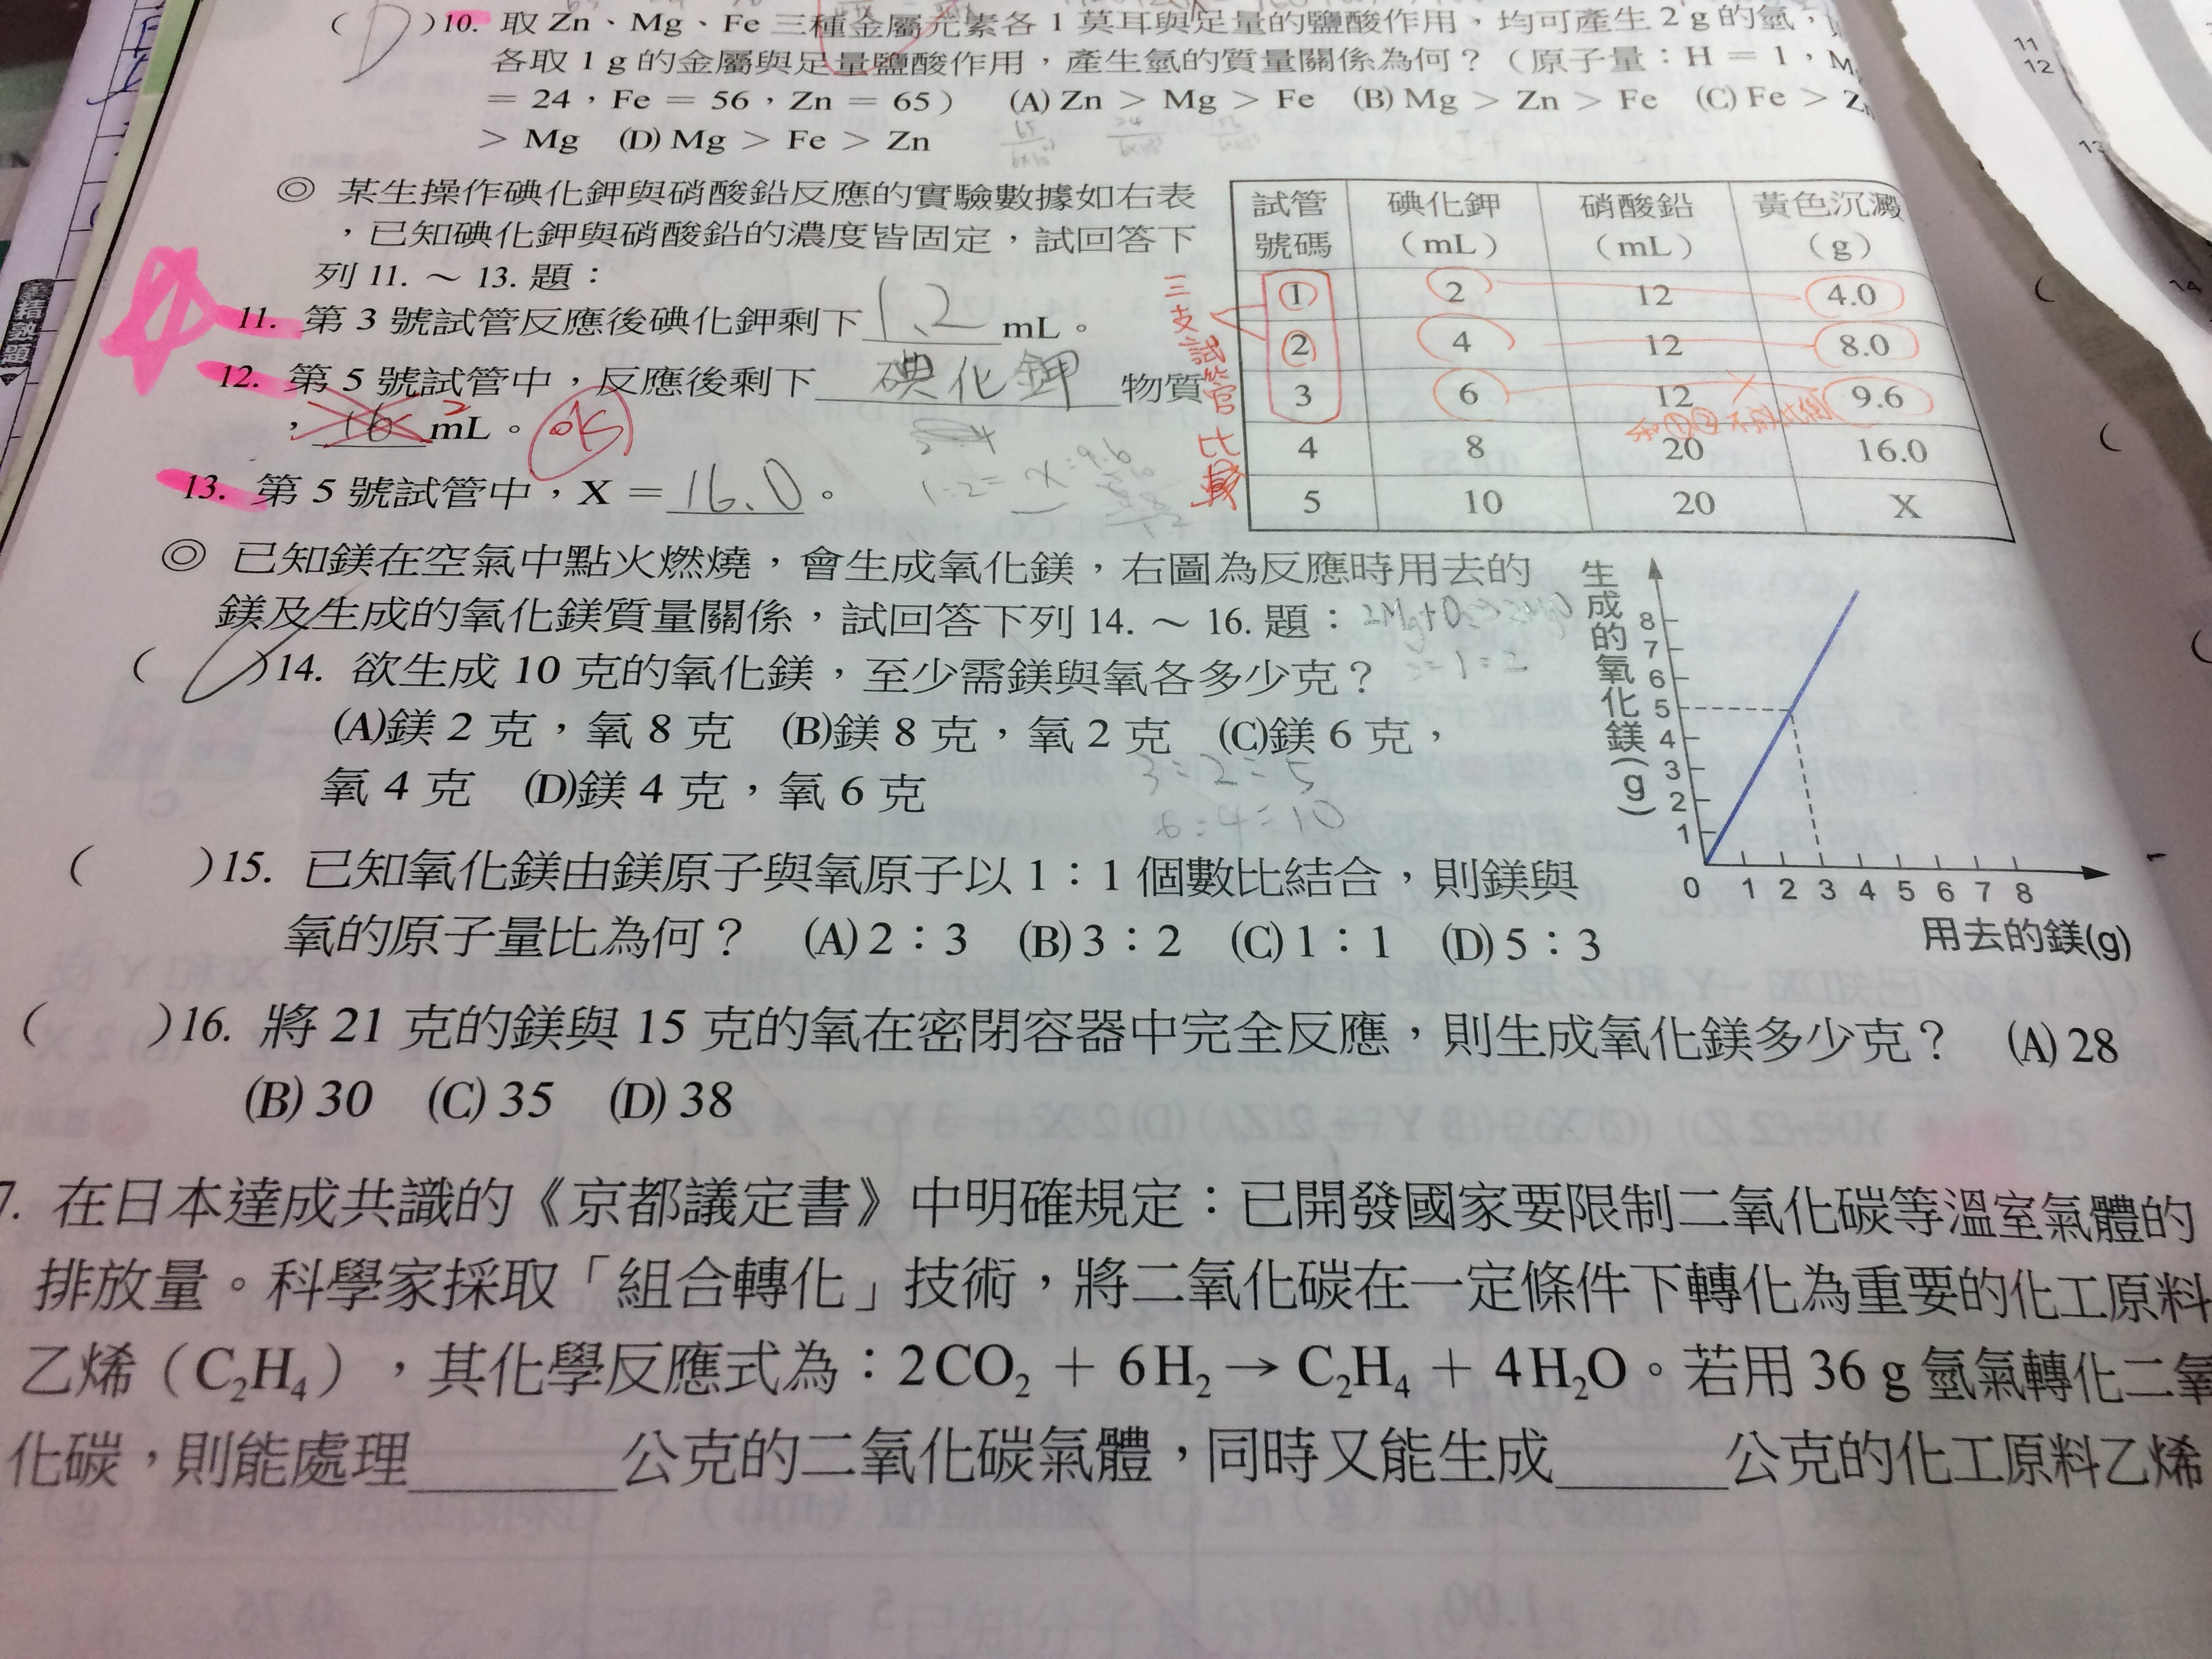 10. 取 Zn、Mg、Fe 三種金屬元素各 1 莫耳與足量的鹽酸作用，均可產生 2 g 的氫，
各取 1 g 的金屬與足量鹽酸作用，產生氫的質量關係為何？（原子量：H = 1，M
= 24，Fe = 56，Zn = 65） (A) Zn > Mg > Fe (B) Mg > Zn > Fe (C) Fe > Zn
> Mg (D) Mg > Fe > Zn
◎ 某生操作碘化鉀與硝酸鉛反應的實驗數據如右表
，已知碘化鉀與硝酸鉛的濃度皆固定，試回答下
列 11. ～ 13. 題：
11. 第 3 號試管反應後碘化鉀剩下 1.2 mL。
12. 第 5 號試管中，反應後剩下 碘化鉀 物質
， 16 mL。 2 OK
13. 第 5 號試管中，X = 16.0 。
試管號碼 碘化鉀（mL） 硝酸鉛（mL） 黃色沉澱（g）
1 2 12 4.0
2 4 12 8.0
3 6 12 9.6
4 8 20 16.0
5 10 20 X
三支試管比較
◎ 已知鎂在空氣中點火燃燒，會生成氧化鎂，右圖為反應時用去的
鎂及生成的氧化鎂質量關係，試回答下列 14. ～ 16. 題：
( C )14. 欲生成 10 克的氧化鎂，至少需鎂與氧各多少克？
(A)鎂 2 克，氧 8 克 (B)鎂 8 克，氧 2 克 (C)鎂 6 克，
氧 4 克 (D)鎂 4 克，氧 6 克
3 : 2 = 5
6 : 4 = 10
生成的氧化鎂(g)
8
7
6
5
4
3
2
1
0 1 2 3 4 5 6 7 8
用去的鎂(g)
( )15. 已知氧化鎂由鎂原子與氧原子以 1：1 個數比結合，則鎂與
氧的原子量比為何？ (A) 2：3 (B) 3：2 (C) 1：1 (D) 5：3
( )16. 將 21 克的鎂與 15 克的氧在密閉容器中完全反應，則生成氧化鎂多少克？ (A) 28
(B) 30 (C) 35 (D) 38
7. 在日本達成共識的《京都議定書》中明確規定：已開發國家要限制二氧化碳等溫室氣體的
排放量。科學家採取「組合轉化」技術，將二氧化碳在一定條件下轉化為重要的化工原料
乙烯（C₂H₄），其化學反應式為：2CO₂ + 6H₂ → C₂H₄ + 4H₂O。若用 36 g 氫氣轉化二氧
化碳，則能處理＿＿＿公克的二氧化碳氣體，同時又能生成＿＿＿公克的化工原料乙烯
11
12
13
14